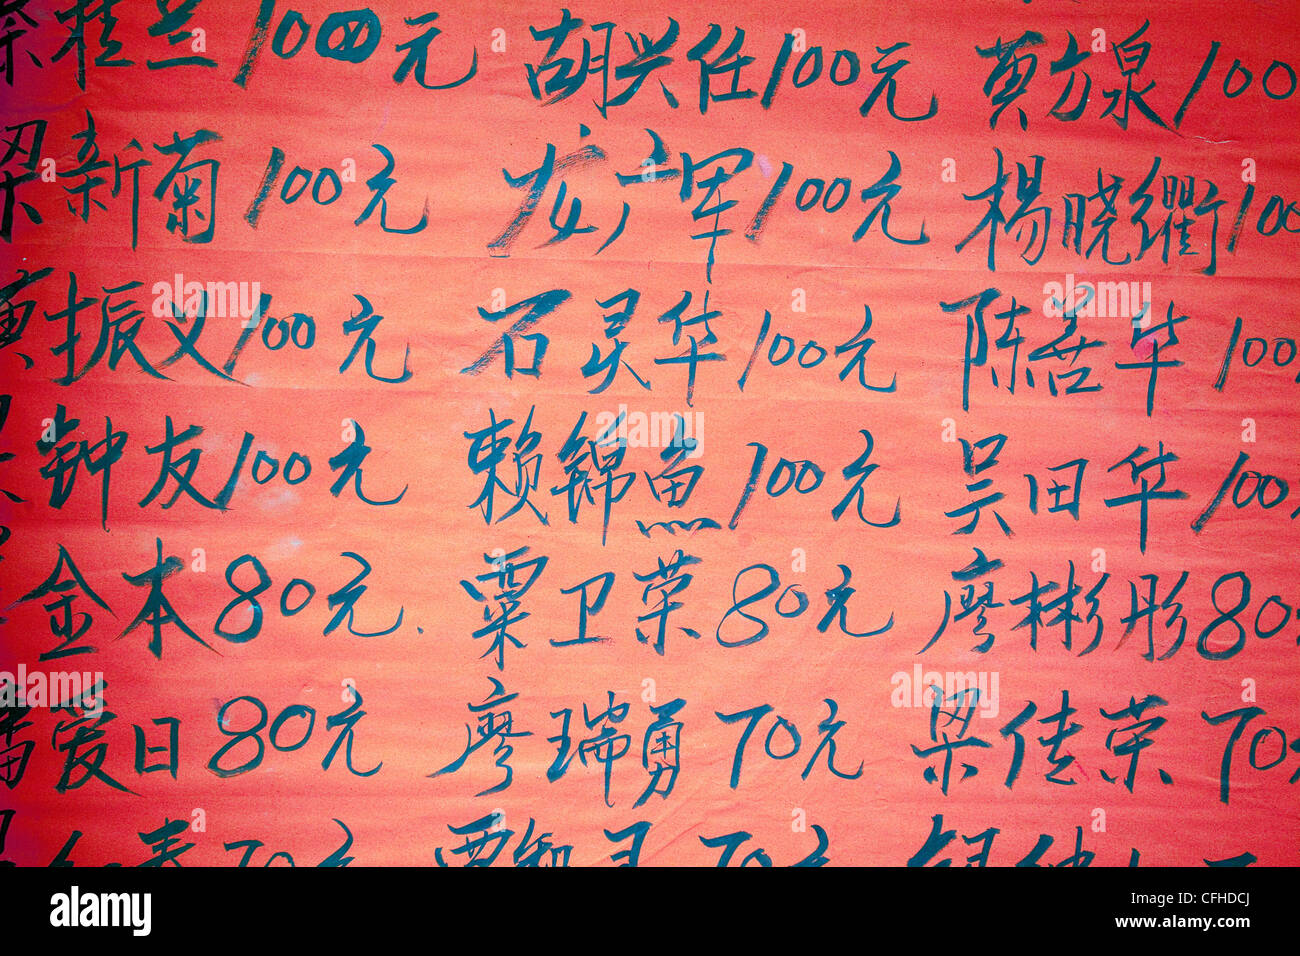 桂兰100元 胡兴任100元 黄方泉100
梁新菊100元 龙广军100元 杨晓衢100
黄振义100元 石灵华100元 陈善华100
钟友100元 赖锦鱼100元 吴田华100
金本80元 粟卫荣80元 廖彬彤80
潘爱日80元 廖瑞勇70元 梁佳荣70
春70元 70元
alamy stock photo
Image ID: CFHDCJ
www.alamy.com